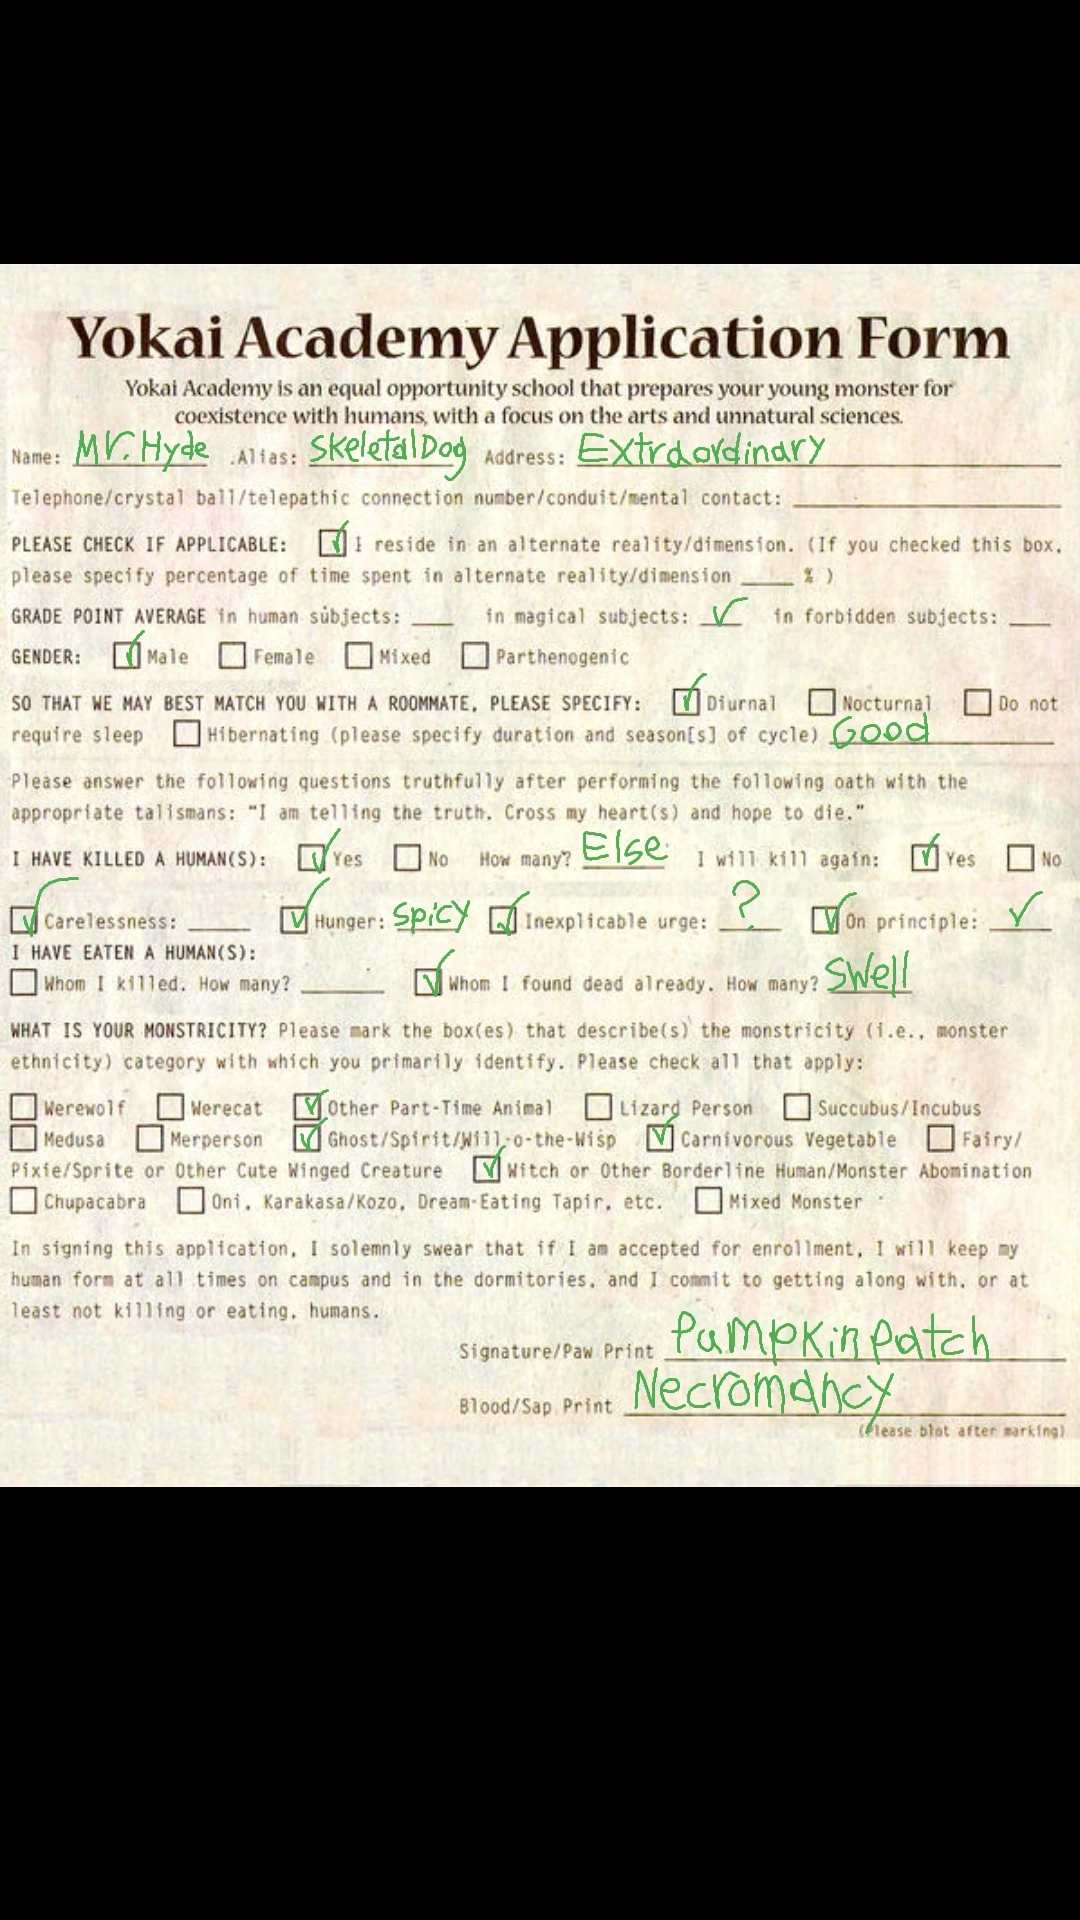 Yokai Academy Application Form
Yokai Academy is an equal opportunity school that prepares your young monster for
coexistence with humans, with a focus on the arts and unnatural sciences.
Name: Mr. Hyde Alias: SkeletalDog Address: Extraordinary
Telephone/crystal ball/telepathic connection number/conduit/mental contact:
PLEASE CHECK IF APPLICABLE: ✓ I reside in an alternate reality/dimension. (If you checked this box,
please specify percentage of time spent in alternate reality/dimension ____ % )
GRADE POINT AVERAGE in human subjects: ___ in magical subjects: ✓ in forbidden subjects: ___
GENDER: ✓ Male ☐ Female ☐ Mixed ☐ Parthenogenic
SO THAT WE MAY BEST MATCH YOU WITH A ROOMMATE, PLEASE SPECIFY: ✓ Diurnal ☐ Nocturnal ☐ Do not
require sleep ☐ Hibernating (please specify duration and season[s] of cycle) Good
Please answer the following questions truthfully after performing the following oath with the
appropriate talismans: "I am telling the truth. Cross my heart(s) and hope to die."
I HAVE KILLED A HUMAN(S): ✓ Yes ☐ No How many? Else I will kill again: ✓ Yes ☐ No
✓ Carelessness: ____ ✓ Hunger: Spicy ✓ Inexplicable urge: ? ✓ On principle: ✓
I HAVE EATEN A HUMAN(S):
☐ Whom I killed. How many? ____ ✓ Whom I found dead already. How many? Swell
WHAT IS YOUR MONSTRICITY? Please mark the box(es) that describe(s) the monstricity (i.e., monster
ethnicity) category with which you primarily identify. Please check all that apply:
☐ Werewolf ☐ Werecat ✓ Other Part-Time Animal ☐ Lizard Person ☐ Succubus/Incubus
☐ Medusa ☐ Merperson ✓ Ghost/Spirit/Will-o-the-Wisp ✓ Carnivorous Vegetable ☐ Fairy/
Pixie/Sprite or Other Cute Winged Creature ✓ Witch or Other Borderline Human/Monster Abomination
☐ Chupacabra ☐ Oni, Karakasa/Kozo, Dream-Eating Tapir, etc. ☐ Mixed Monster
In signing this application, I solemnly swear that if I am accepted for enrollment, I will keep my
human form at all times on campus and in the dormitories, and I commit to getting along with, or at
least not killing or eating, humans.
Signature/Paw Print Pumpkin patch
Blood/Sap Print Necromancy
(Please blot after marking)